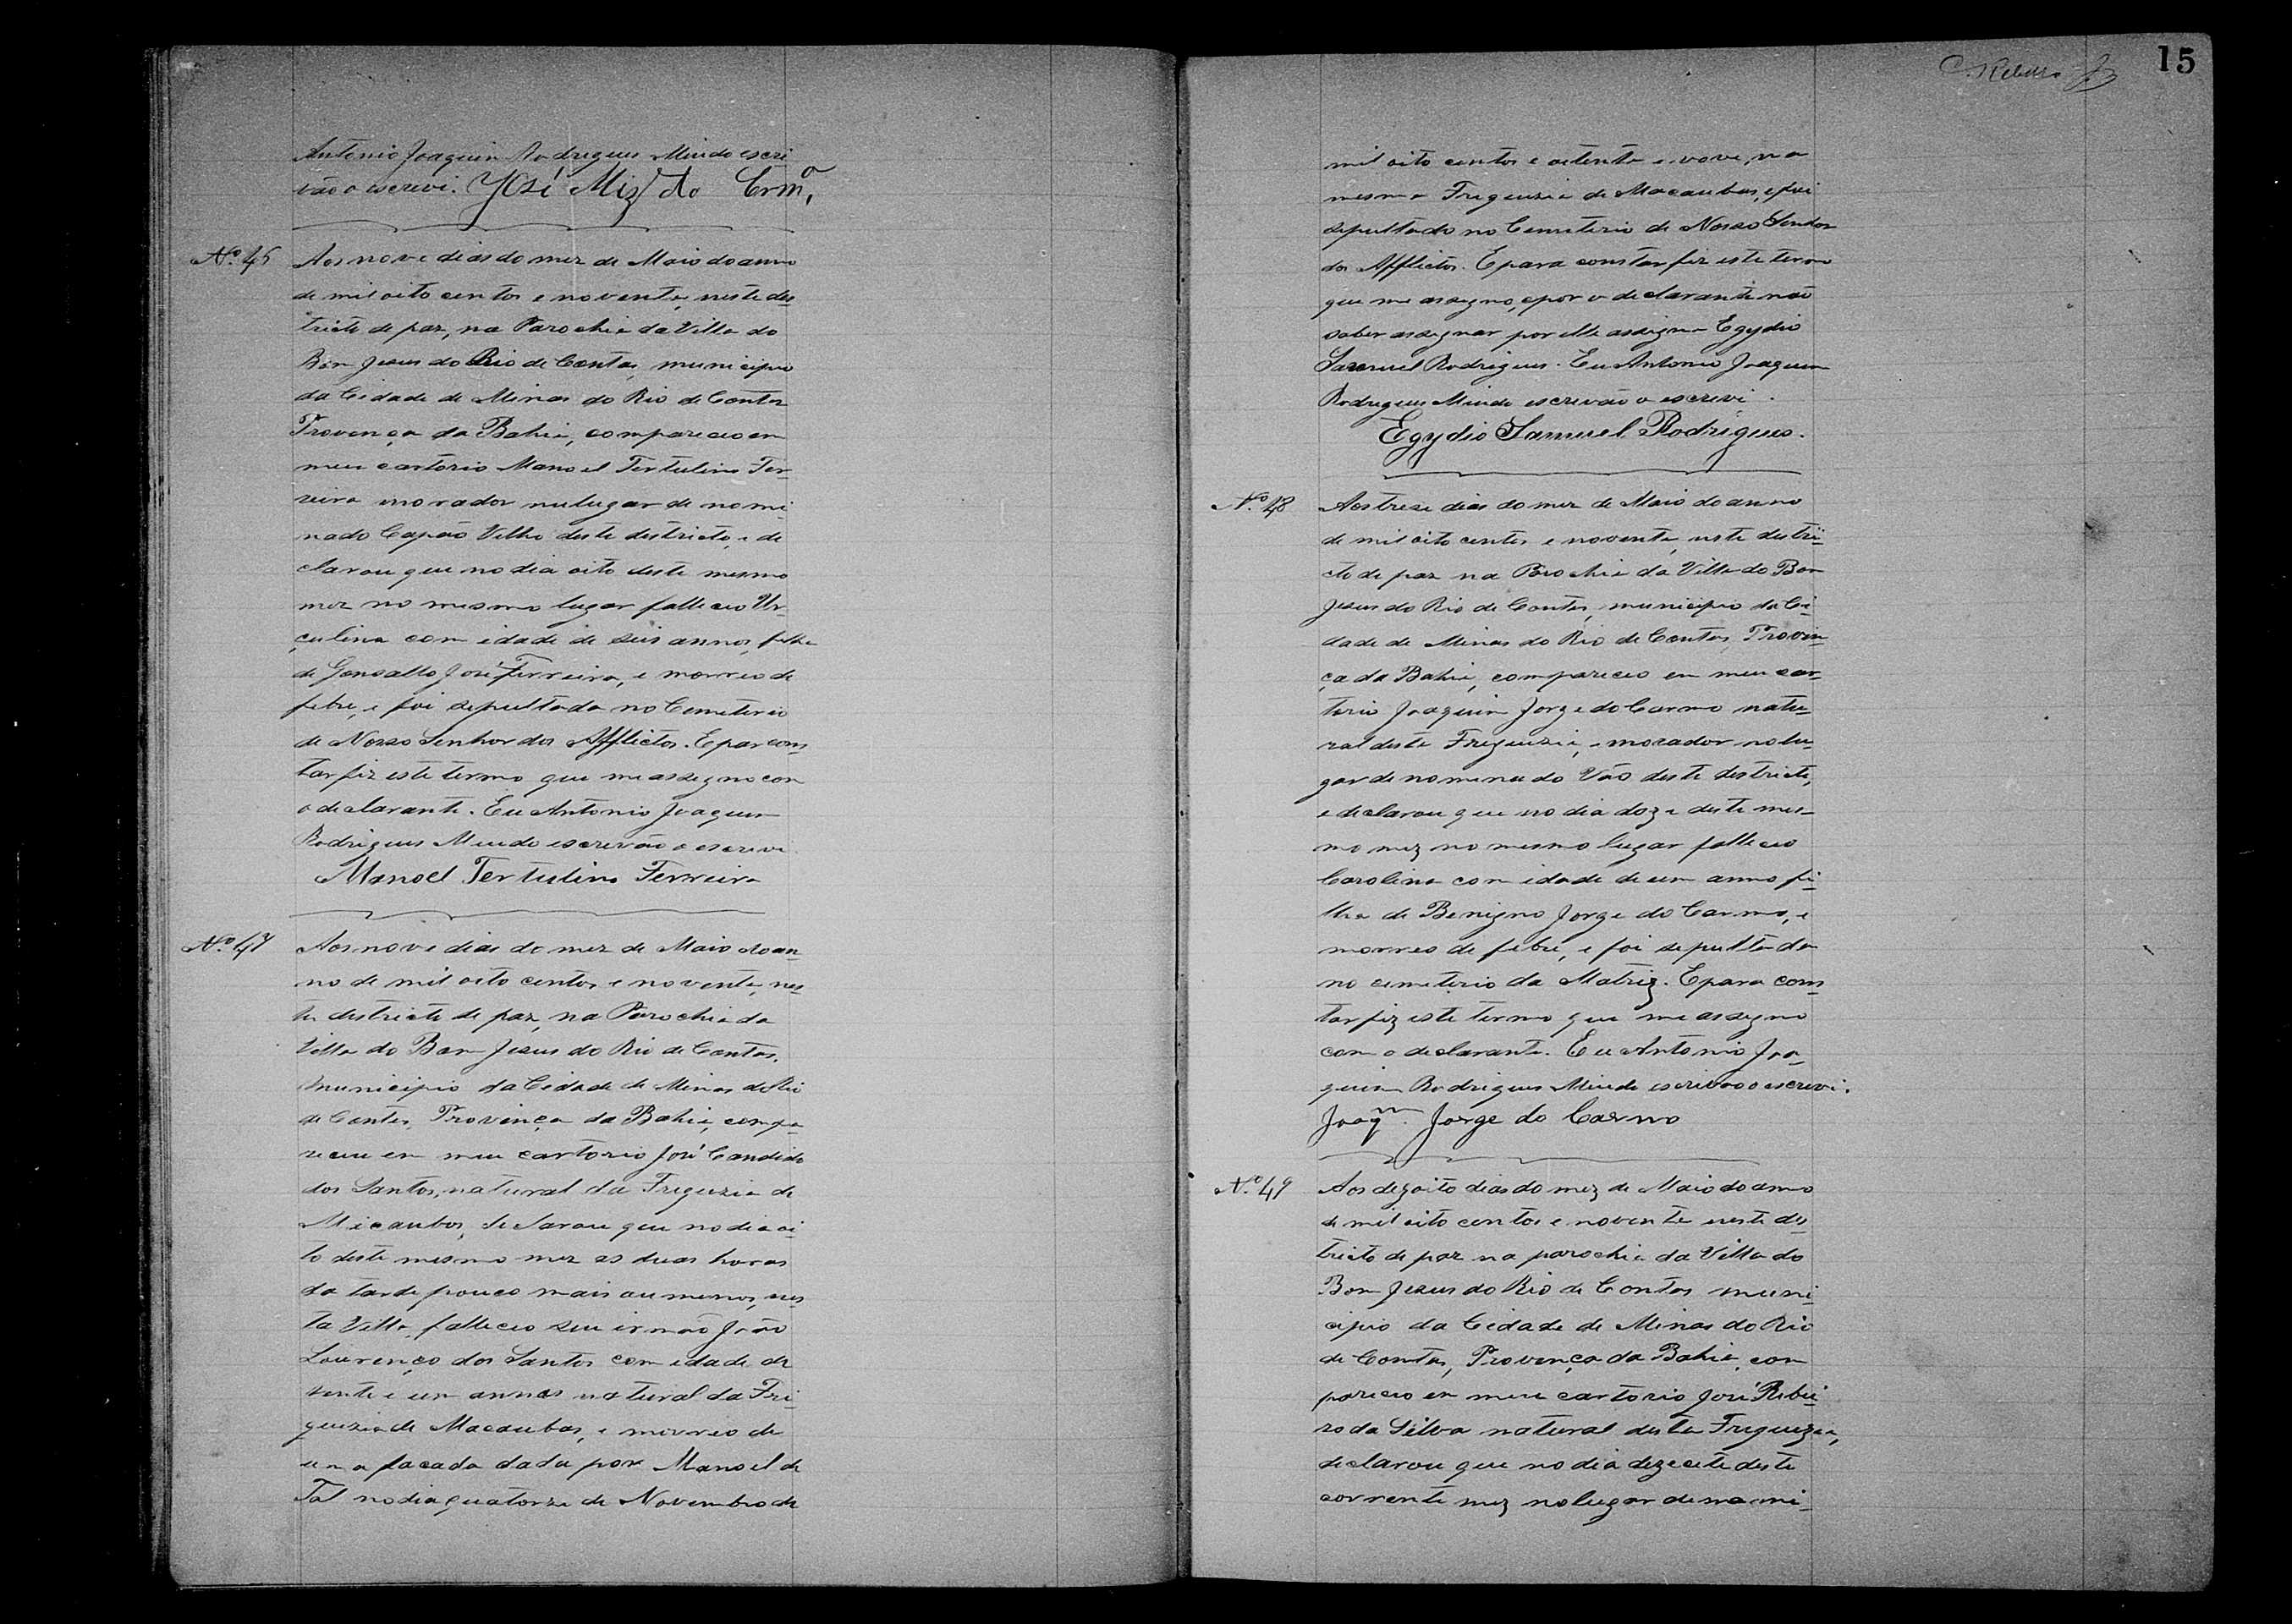 Antonio Joaquim Rodrigues Mindo escri
vão o escrevi. José Miz do Crmo,
No. 46 Aos nove dias do mez de Maio do anno
de mil oito centos e noventa, neste des
tricto de paz, na Parochia da Villa do
Bom Jesus do Rio de Contas, municipio
da Cidade de Minas do Rio de Contas
Provença da Bahia, compareceo em
meu cartorio Manoel Tertulino Fer
reira morador no lugar de nomi
nado Capão Velho deste destricto, e de
clarou que no dia oito deste mesmo
mez no mesmo lugar falleceo Ur
çulina com idade de seis annos, filha
de Gonsallo José Ferreira, e morreo de
febre, e foi sepultada no Cemeterio
de Nosso Senhor dos Afflictos. E par cons
tar fiz este termo que me assegno com
o declarante. Eu Antonio Joaquim
Rodrigues Mindo escrevão o escrevi
Manoel Tertulino Ferreira
No. 47 Aos nove dias do mez de Maio do an
no de mil oito centos e noventa, nes
te destricto de paz, na Parochia da
Villa do Bom Jesus do Rio de Contas,
municipio da Cidade de Minas do Rio
de Contas, Provença da Bahia, compa
receu em meu cartorio José Candido
dos Santos, natural da Freguezia de
Macaubas, declarou que no dia oi
to deste mesmo mez as duas horas
da tarde pouco mais ou menos, nes
ta Villa, falleceo seu irmão João
Lourenço dos Santos com idade de
vente e um annos natural da Fre
guezia de Macaubas, e morreo de
uma facada dada por Manoel de
Tal no dia quatorze de Novembro de
15
mil oito centos e oitenta e nove, na
mesma Freguezia de Macaubas, e foi
sepultado no Cemeterio de Nosso Senhor
dos Afflictos. E para constar fiz este termo
que me assegno, e por o declarante não
saber assegnar por elle assegna Egydio
Samuel Rodrigues. Eu Antonio Joaquim
Rodrigues Mindo escrevão o escrevi.
Egydio Samuel Rodrigues.
No. 48 Aos treze dias do mez de Maio do anno
de mil oito centos e noventa, neste destri
cto de paz na Parochia da Villa do Bom
Jesus do Rio de Contas, municipio da Ci
dade de Minas do Rio de Contas, Proven
ça da Bahia, compareceo em meu car
torio Joaquim Jorge do Carmo natu
ral desta Freguezia, e morador no lu
gar denomenado Vão deste destricto,
e declarou que no dia doze deste mes
mo mez no mesmo lugar falleceo
Carolina com idade de um anno fi
lha de Benigno Jorge do Carmo, e
morreo de febre, e foi sepultada
no cemeterio da Matriz. E para cons
tar fiz este termo que me assegno
com o declarante. Eu Antonio Joa
quim Rodrigues Mindo escrivão o escrevi.
Joaqm. Jorge do Carmo
No. 49 Aos dezoito dias do mez de Maio do anno
de mil oito centos e noventa neste des
tricto de paz na parochia da Villa do
Bom Jesus do Rio de Contas muni
cipio da Cidade de Minas do Rio
de Contas, Provença da Bahia, com
pareceo em meu cartorio José Ribei
ro da Silva natural desta Freguezia,
declarou que no dia dezecete deste
corrente mez no lugar denomi